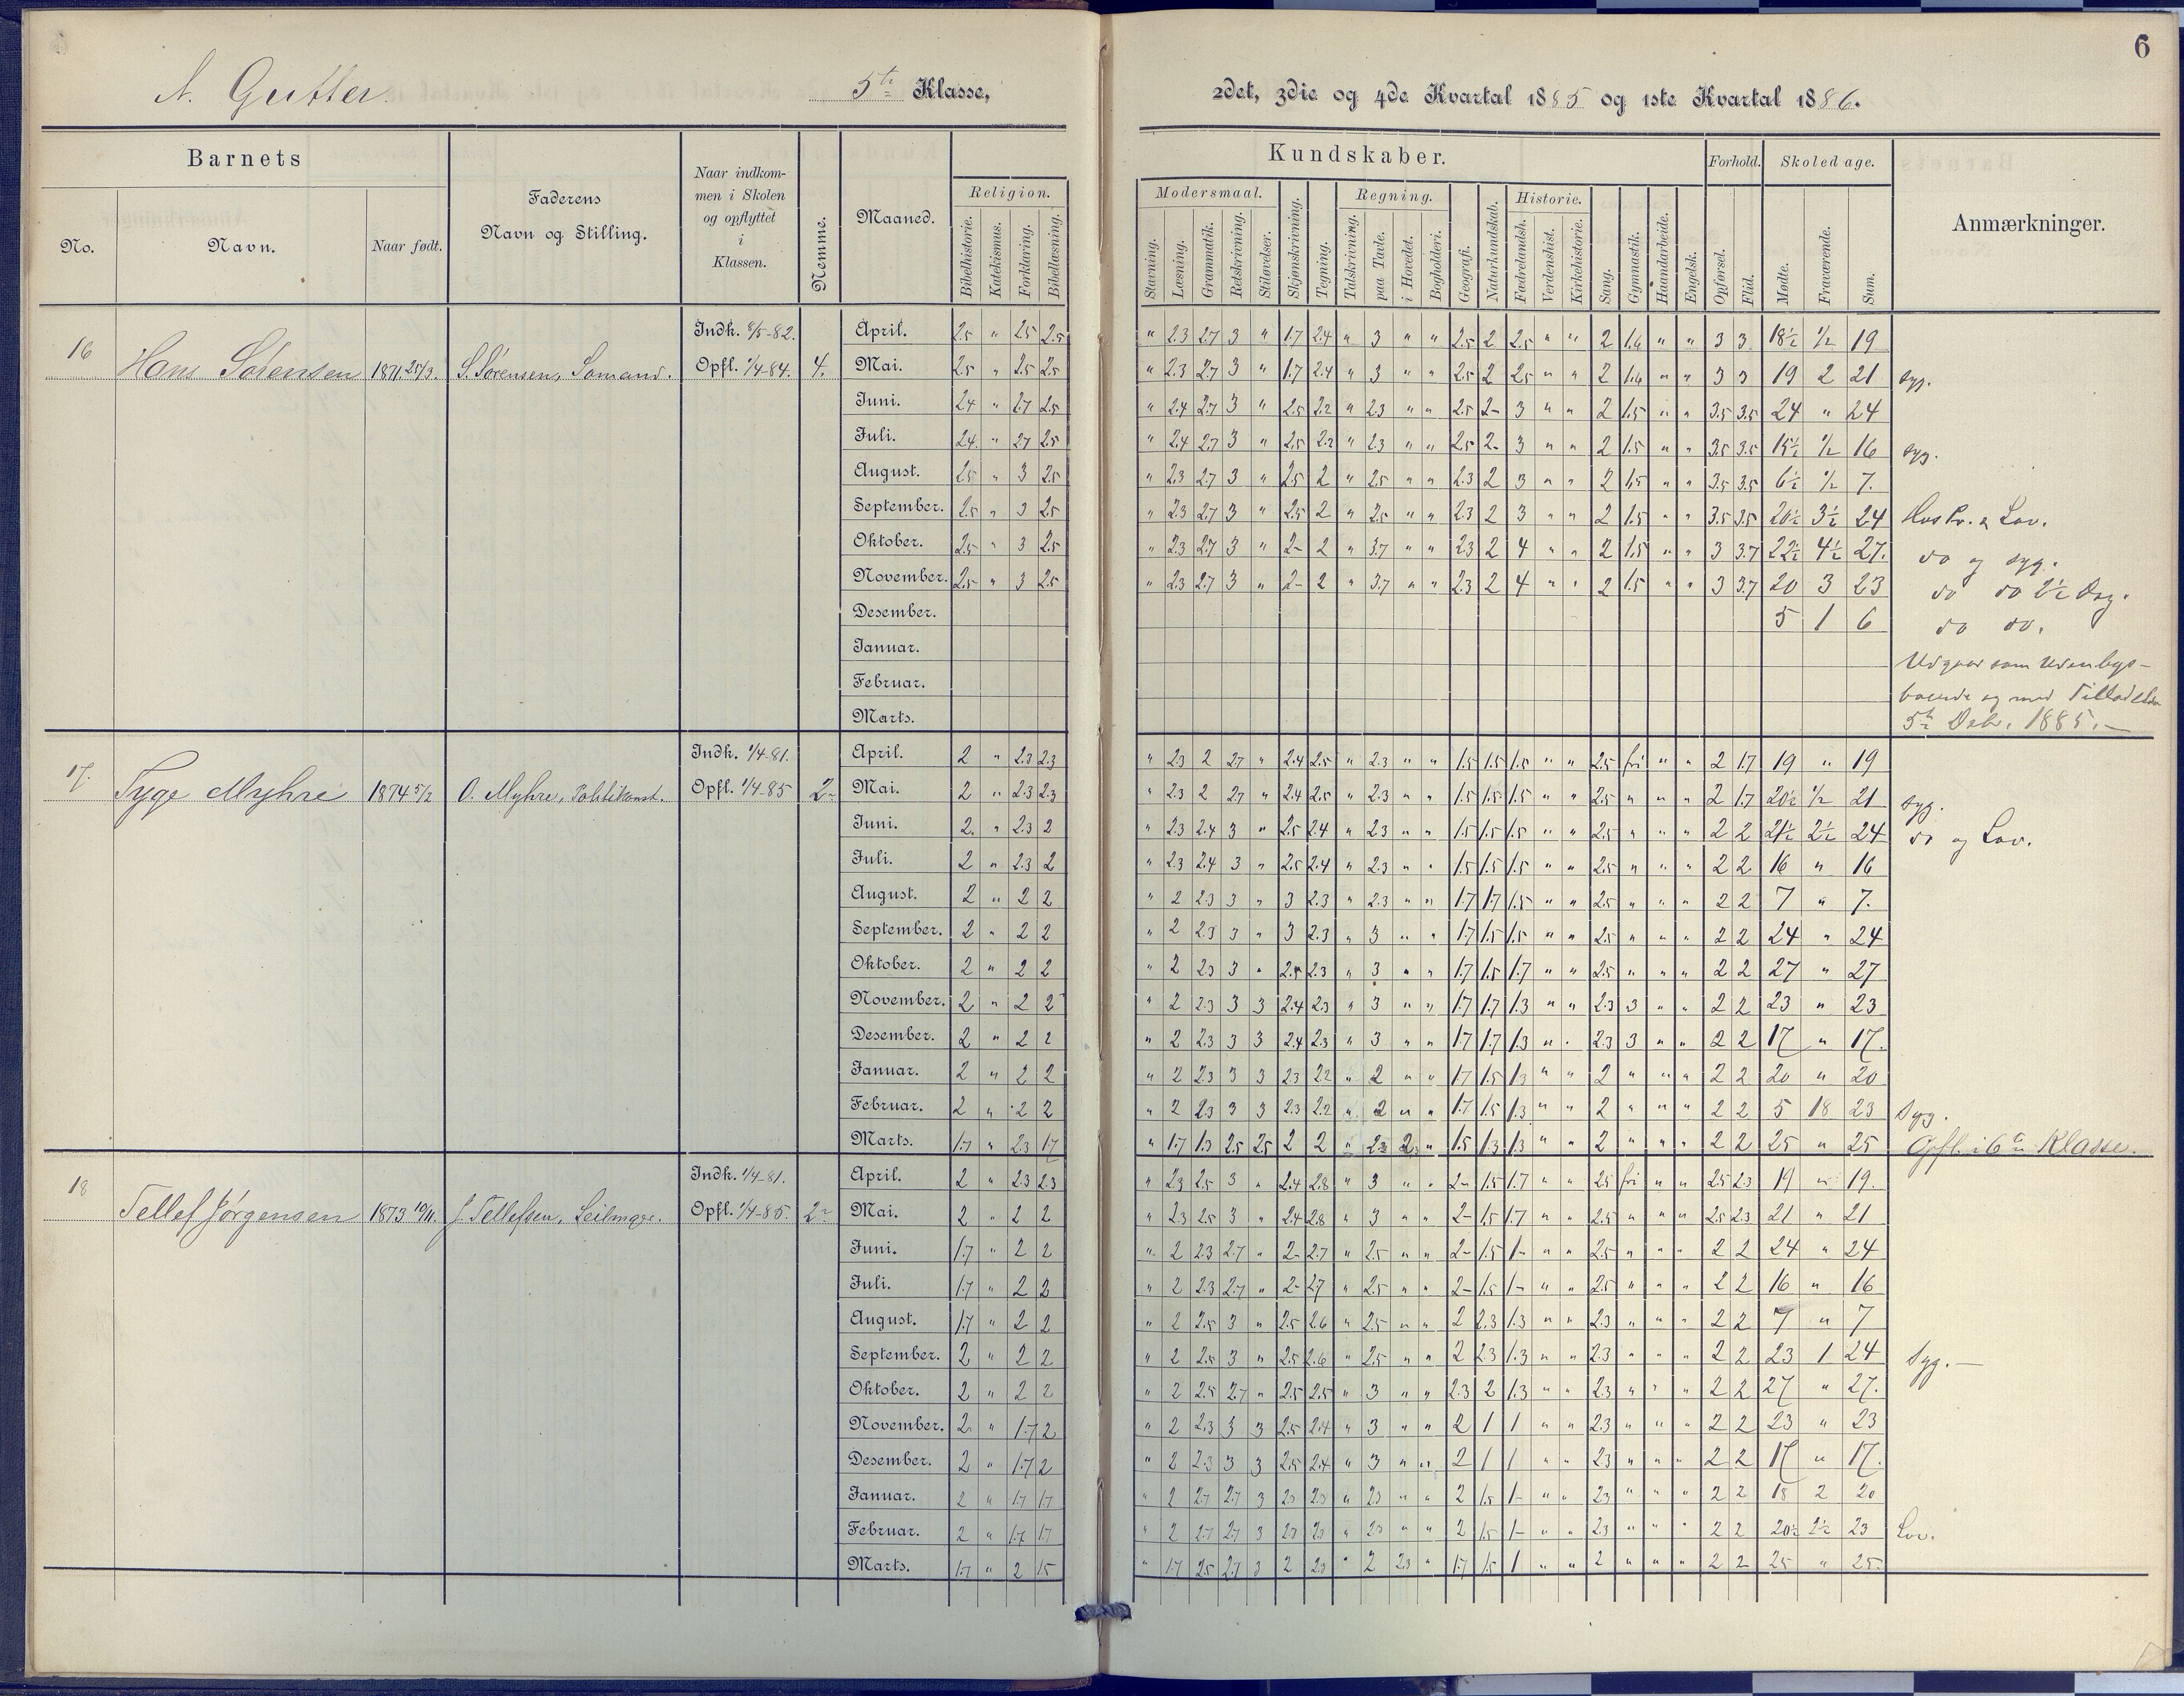 6
A. Gutter. 5te Klasse, 2det, 3die og 4de Kvartal 1885 og 1ste Kvartal 1886.
Barnets
No. Navn. Naar født.
Faderens
Navn og Stilling.
Naar indkom-
men i Skolen
og opflyttet
i
Klassen.
Nemme.
Maaned.
Religion.
Bibelhistorie. Katekismus. Forklaring. Bibellæsning.
Kundskaber.
Modersmaal.
Stavning. Læsning. Grammatik. Retskrivning. Stiløvelser.
Skjønskrivning. Tegning.
Regning.
Talskrivning. paa Tavle. i Hovedet. Bogholderi.
Geografi. Naturkundskab.
Historie.
Fædrelandsh. Verdenshist. Kirkehistorie.
Sang. Gymnastik. Haandarbeide. Engelsk.
Forhold.
Opførsel. Flid.
Skoledage.
Mødte. Fraværende. Sum.
Anmærkninger.
16 Hans Sørensen 1871 25/3. S. Sørensen, Sømand. Indk. 8/5-82. Opfl. 1/4-84. 4.
April. 2.5 " 2.5 2.5 " 2.3 2.7 3 " 1.7 2.4 " 3 " " 2.5 2 2.5 " " 2 1.6 " " 3 3 18½ ½ 19
Mai. 2.5 " 2.5 2.5 " 2.3 2.7 3 " 1.7 2.4 " 3 " " 2.5 2 2.5 " " 2 1.6 " " 3 3 19 2 21 syg.
Juni. 2.4 " 2.7 2.5 " 2.4 2.7 3 " 2.5 2.2 " 2.3 " " 2.5 2- 3 " " 2 1.5 " " 3.5 3.5 24 " 24
Juli. 2.4 " 2.7 2.5 " 2.4 2.7 3 " 2.5 2.2 " 2.3 " " 2.5 2- 3 " " 2 1.5 " " 3.5 3.5 15½ ½ 16 syg.
August. 2.5 " 3 2.5 " 2.3 2.7 3 " 2.5 2 " 2.5 " " 2.3 2 3 " " 2 1.5 " " 3.5 3.5 6½ ½ 7.
September. 2.5 " 3 2.5 " 2.3 2.7 3 " 2.5 2 " 2.5 " " 2.3 2 3 " " 2 1.5 " " 3.5 3.5 20½ 3½ 24 Lov.
Oktober. 2.5 " 3 2.5 " 2.3 2.7 3 " 2- 2 " 3.7 " " 2.3 2 4 " " 2 1.5 " " 3 3.7 22½ 4½ 27. do og syg.
November. 2.5 " 3 2.5 " 2.3 2.7 3 " 2- 2 " 3.7 " " 2.3 2 4 " " 2 1.5 " " 3 3.7 20 3 23 do do 2½ Dag.
Desember. 5 1 6 do do.
Januar. Udgaar som Udenbys-
Februar. boende og med Tilladelse
Marts. 5te Debr. 1885.-
17. Tyge Myhre 1874 5/2 O. Myhre, Politikonst. Indk. 1/4-81. Opfl. 1/4-85 2-
April. 2 " 2.3 2.3 " 2.3 2 2.7 " 2.4 2.5 " 2.3 " " 1.5 1.5 1.5 " " 2.5 fri " " 2 1.7 19 " 19
Mai. 2 " 2.3 2.3 " 2.3 2 2.7 " 2.4 2.5 " 2.3 " " 1.5 1.5 1.5 " " 2.5 " " " 2 1.7 20½ ½ 21 syg.
Juni. 2. " 2.3 2 " 2.3 2.4 3 " 2.5 2.4 " 2.3 " " 1.5 1.5 1.5 " " 2.5 " " " 2 2 21½ 2½ 24 do og Lov.
Juli. 2 " 2.3 2 " 2.3 2.4 3 " 2.5 2.4 " 2.3 " " 1.5 1.5 1.5 " " 2.5 " " " 2 2 16 " 16
August. 2 " 2 2 " 2 2.3 3 " 3 2.3 " 2.3 " " 1.7 1.7 1.5 " " 2.5 " " " 2 2 7 " 7.
September. 2 " 2 2 " 2 2.3 3 " 3 2.3 " 3 " " 1.7 1.5 1.5 " " 2.5 " " " 2 2 24 " 24
Oktober. 2 " 2 2 " 2 2.3 3 " 2.5 2.3 " 3 " " 1.7 1.5 1.7 " " 2.5 " " " 2 2 27 " 27
November. 2 " 2 2 " 2 2.3 3 3 2.4 2.3 " 3 " " 1.7 1.7 1.3 " " 2.3 3 " " 2 2 23 " 23
Desember. 2 " 2 2 " 2 2.3 3 3 2.4 2.3 " 3 " " 1.7 1.7 1.3 " " 2.3 3 " " 2 2 17 " 17.
Januar. 2 " 2 2 " 2 2.3 3 3 2.3 2.2 " 2 " " 1.7 1.5 1.3 " " 2 " " " 2 2 20 " 20
Februar. 2 " 2 2 " 2 2.3 3 3 2.3 2.2 " 2 " " 1.7 1.5 1.3 " " 2 " " " 2 2 5 18 23 Syg.
Marts. 1.7 " 2.3 1.7 " 1.7 1.3 2.5 2.5 2 2 " 2.3 2 " 1.5 1.3 1.3 " " 2 " " " 2 2 25 " 25 Opfl. i 6te Klasse.
18 Tellef Jørgensen 1873 10/11. J. Tellefsen, Seilmager. Indk. 1/4-81. Opfl. 1/4-85. 2-
April. 2 " 2.3 2.3 " 2.3 2.5 3 " 2.4 2.8 " 3 " " 2- 1.5 1.7 " " 2.5 fri " " 2.5 2.3 19 " 19.
Mai. 2 " 2 2 " 2.3 2.5 3 " 2.4 2.8 " 3 " " 2- 1.5 1.7 " " 2.5 " " " 2.5 2.3 21 " 21
Juni. 1.7 " 2 2 " 2 2.3 2.7 " 2- 2.7 " 2.5 " " 2- 1.5 1- " " 2.5 " " " 2 2 24 " 24
Juli. 1.7 " 2 2 " 2 2.3 2.7 " 2- 2.7 " 2.5 " " 2- 1.5 1- " " 2.5 " " " 2 2 16 " 16
August. 1.7 " 2 2 " 2 2.5 3 " 2.5 2.6 " 2.5 " " 2 2.3 1.3 " " 2.3 " " " 2 2 7 " 7
September. 2 " 2 2 " 2 2.5 3 " 2.5 2.6 " 2.5 " " 2 2.3 1.3 " " 2.3 " " " 2 2 23 1 24 Syg.-
Oktober. 2 " 2 2 " 2 2.5 2.7 " 2.5 2.5 " 3 " " 2.3 2 1.3 " " 2.3 " " " 2 2 27 " 27.
November. 2 " 1.7 2 " 2 2.3 3 3 2.5 2.4 " 3 " " 2 1 1 " " 2.3 " " " 2 2 23 " 23
Desember. 2 " 1.7 2 " 2 2.3 3 3 2.5 2.4 " 3 " " 2 1 1 " " 2.3 " " " 2 2 17 " 17.
Januar. 2 " 1.7 1.7 " 2 2.7 2.7 3 2.3 2.3 " 2.3 " " 2 1.5 1- " " 2.3 " " " 2 2 18 2 20
Februar. 2 " 1.7 1.7 " 2 2.7 2.7 3 2.3 2.3 " 2.3 " " 2 1.5 1- " " 2.3 " " " 2 2 20½ 2½ 23 Lov.
Marts. 1.7 " 2 1.5 " 1.7 2.5 2.7 3 2 2.3 " 2 2.3 " 1.7 1.5 1 " " 2 " " " 2 2 25 " 25.